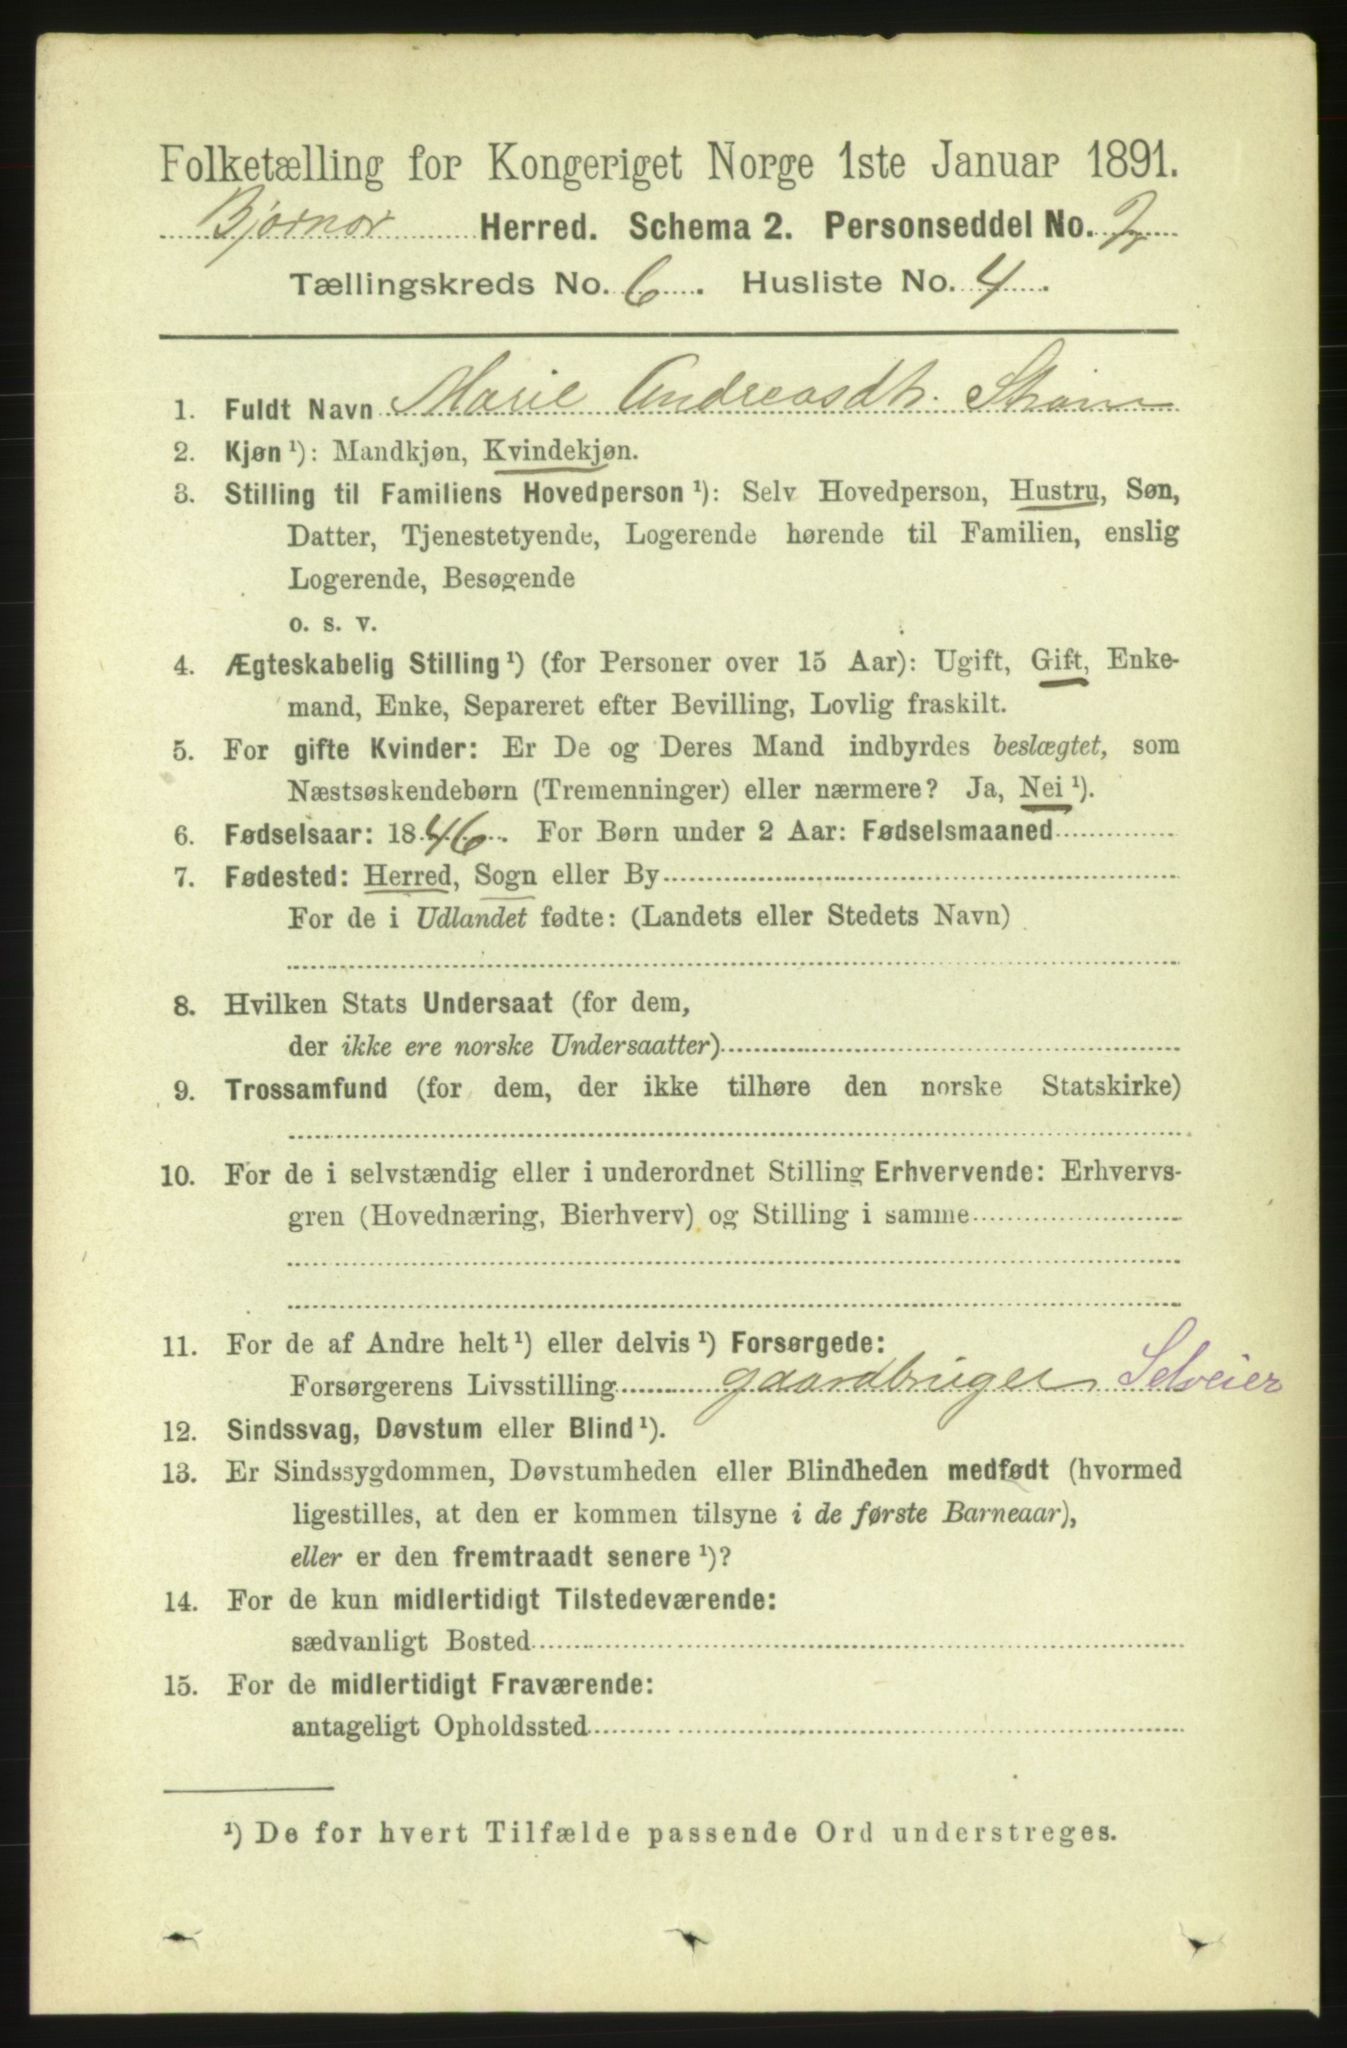 Folketælling for Kongeriget Norge 1ste Januar 1891.
Bjørnør Herred. Schema 2. Personseddel No. 2
Tællingskreds No. 6. Husliste No. 4.
1. Fuldt Navn Marie Andreasdtr.
2. Kjøn ¹): Mandkjøn, Kvindekjøn.
3. Stilling til Familiens Hovedperson ¹): Selv Hovedperson, Hustru, Søn,
Datter, Tjenestetyende, Logerende hørende til Familien, enslig
Logerende, Besøgende
o. s. v.
4. Ægteskabelig Stilling ¹) (for Personer over 15 Aar): Ugift, Gift, Enke-
mand, Enke, Separeret efter Bevilling, Lovlig fraskilt.
5. For gifte Kvinder: Er De og Deres Mand indbyrdes beslægtet, som
Næstsøskendebørn (Tremenninger) eller nærmere? Ja, Nei ¹).
6. Fødselsaar: 1846. For Børn under 2 Aar: Fødselsmaaned
7. Fødested: Herred, Sogn eller By
For de i Udlandet fødte: (Landets eller Stedets Navn)
8. Hvilken Stats Undersaat (for dem,
der ikke ere norske Undersaatter)
9. Trossamfund (for dem, der ikke tilhøre den norske Statskirke)
10. For de i selvstændig eller i underordnet Stilling Erhvervende: Erhvervs-
gren (Hovednæring, Bierhverv) og Stilling i samme
11. For de af Andre helt ¹) eller delvis ¹) Forsørgede:
Forsørgerens Livsstilling gaardbruger Selveier
12. Sindssvag, Døvstum eller Blind ¹).
13. Er Sindssygdommen, Døvstumheden eller Blindheden medfødt (hvormed
ligestilles, at den er kommen tilsyne i de første Barneaar),
eller er den fremtraadt senere ¹)?
14. For de kun midlertidigt Tilstedeværende:
sædvanligt Bosted
15. For de midlertidigt Fraværende:
antageligt Opholdssted
¹) De for hvert Tilfælde passende Ord understreges.